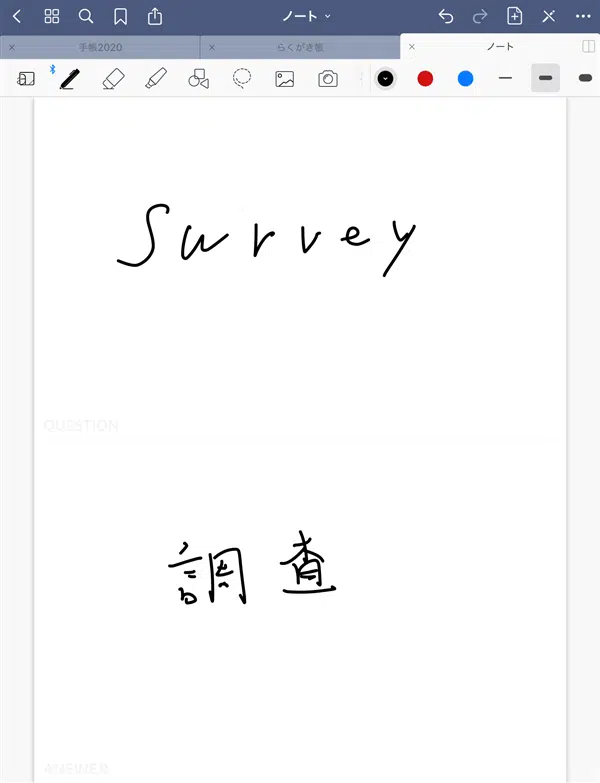 ノート
手帳2020
らくがき帳
ノート
Survey
QUESTION
調査
ANSWER